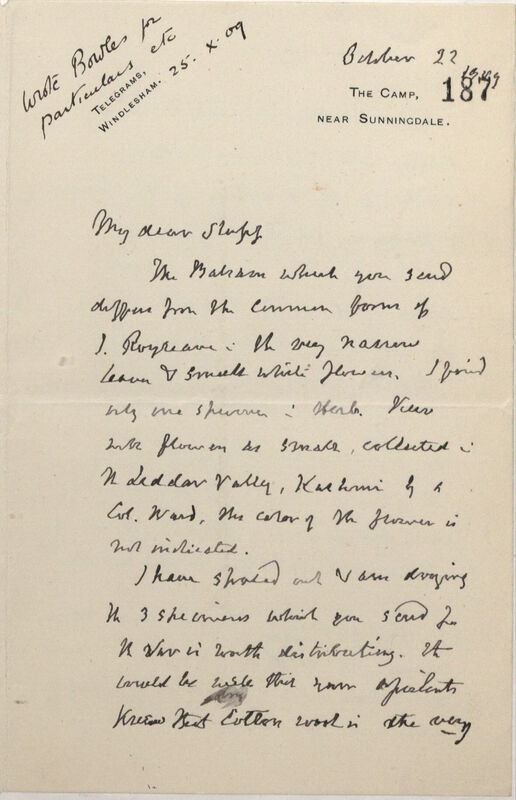 Wrote Bowles for
particulars etc
25.X.09
TELEGRAMS,
WINDLESHAM.
October 22
1909
187
THE CAMP,
NEAR SUNNINGDALE.
My dear Stapf
The Balsam which you send
differs from the common form of
I. Royleana in the very narrow
leaves & small white flowers. I find
only one specimen in Herb. Kew
with flowers as small, collected in
the Liddar Valley, Kashmir by a
Col. Ward, the color of the flower is
not indicated.
I have spread out & am drying
the 3 specimens which you send for
the Var is worth distributing. It
would be well that your
dry
knew that Cotton wool is the very